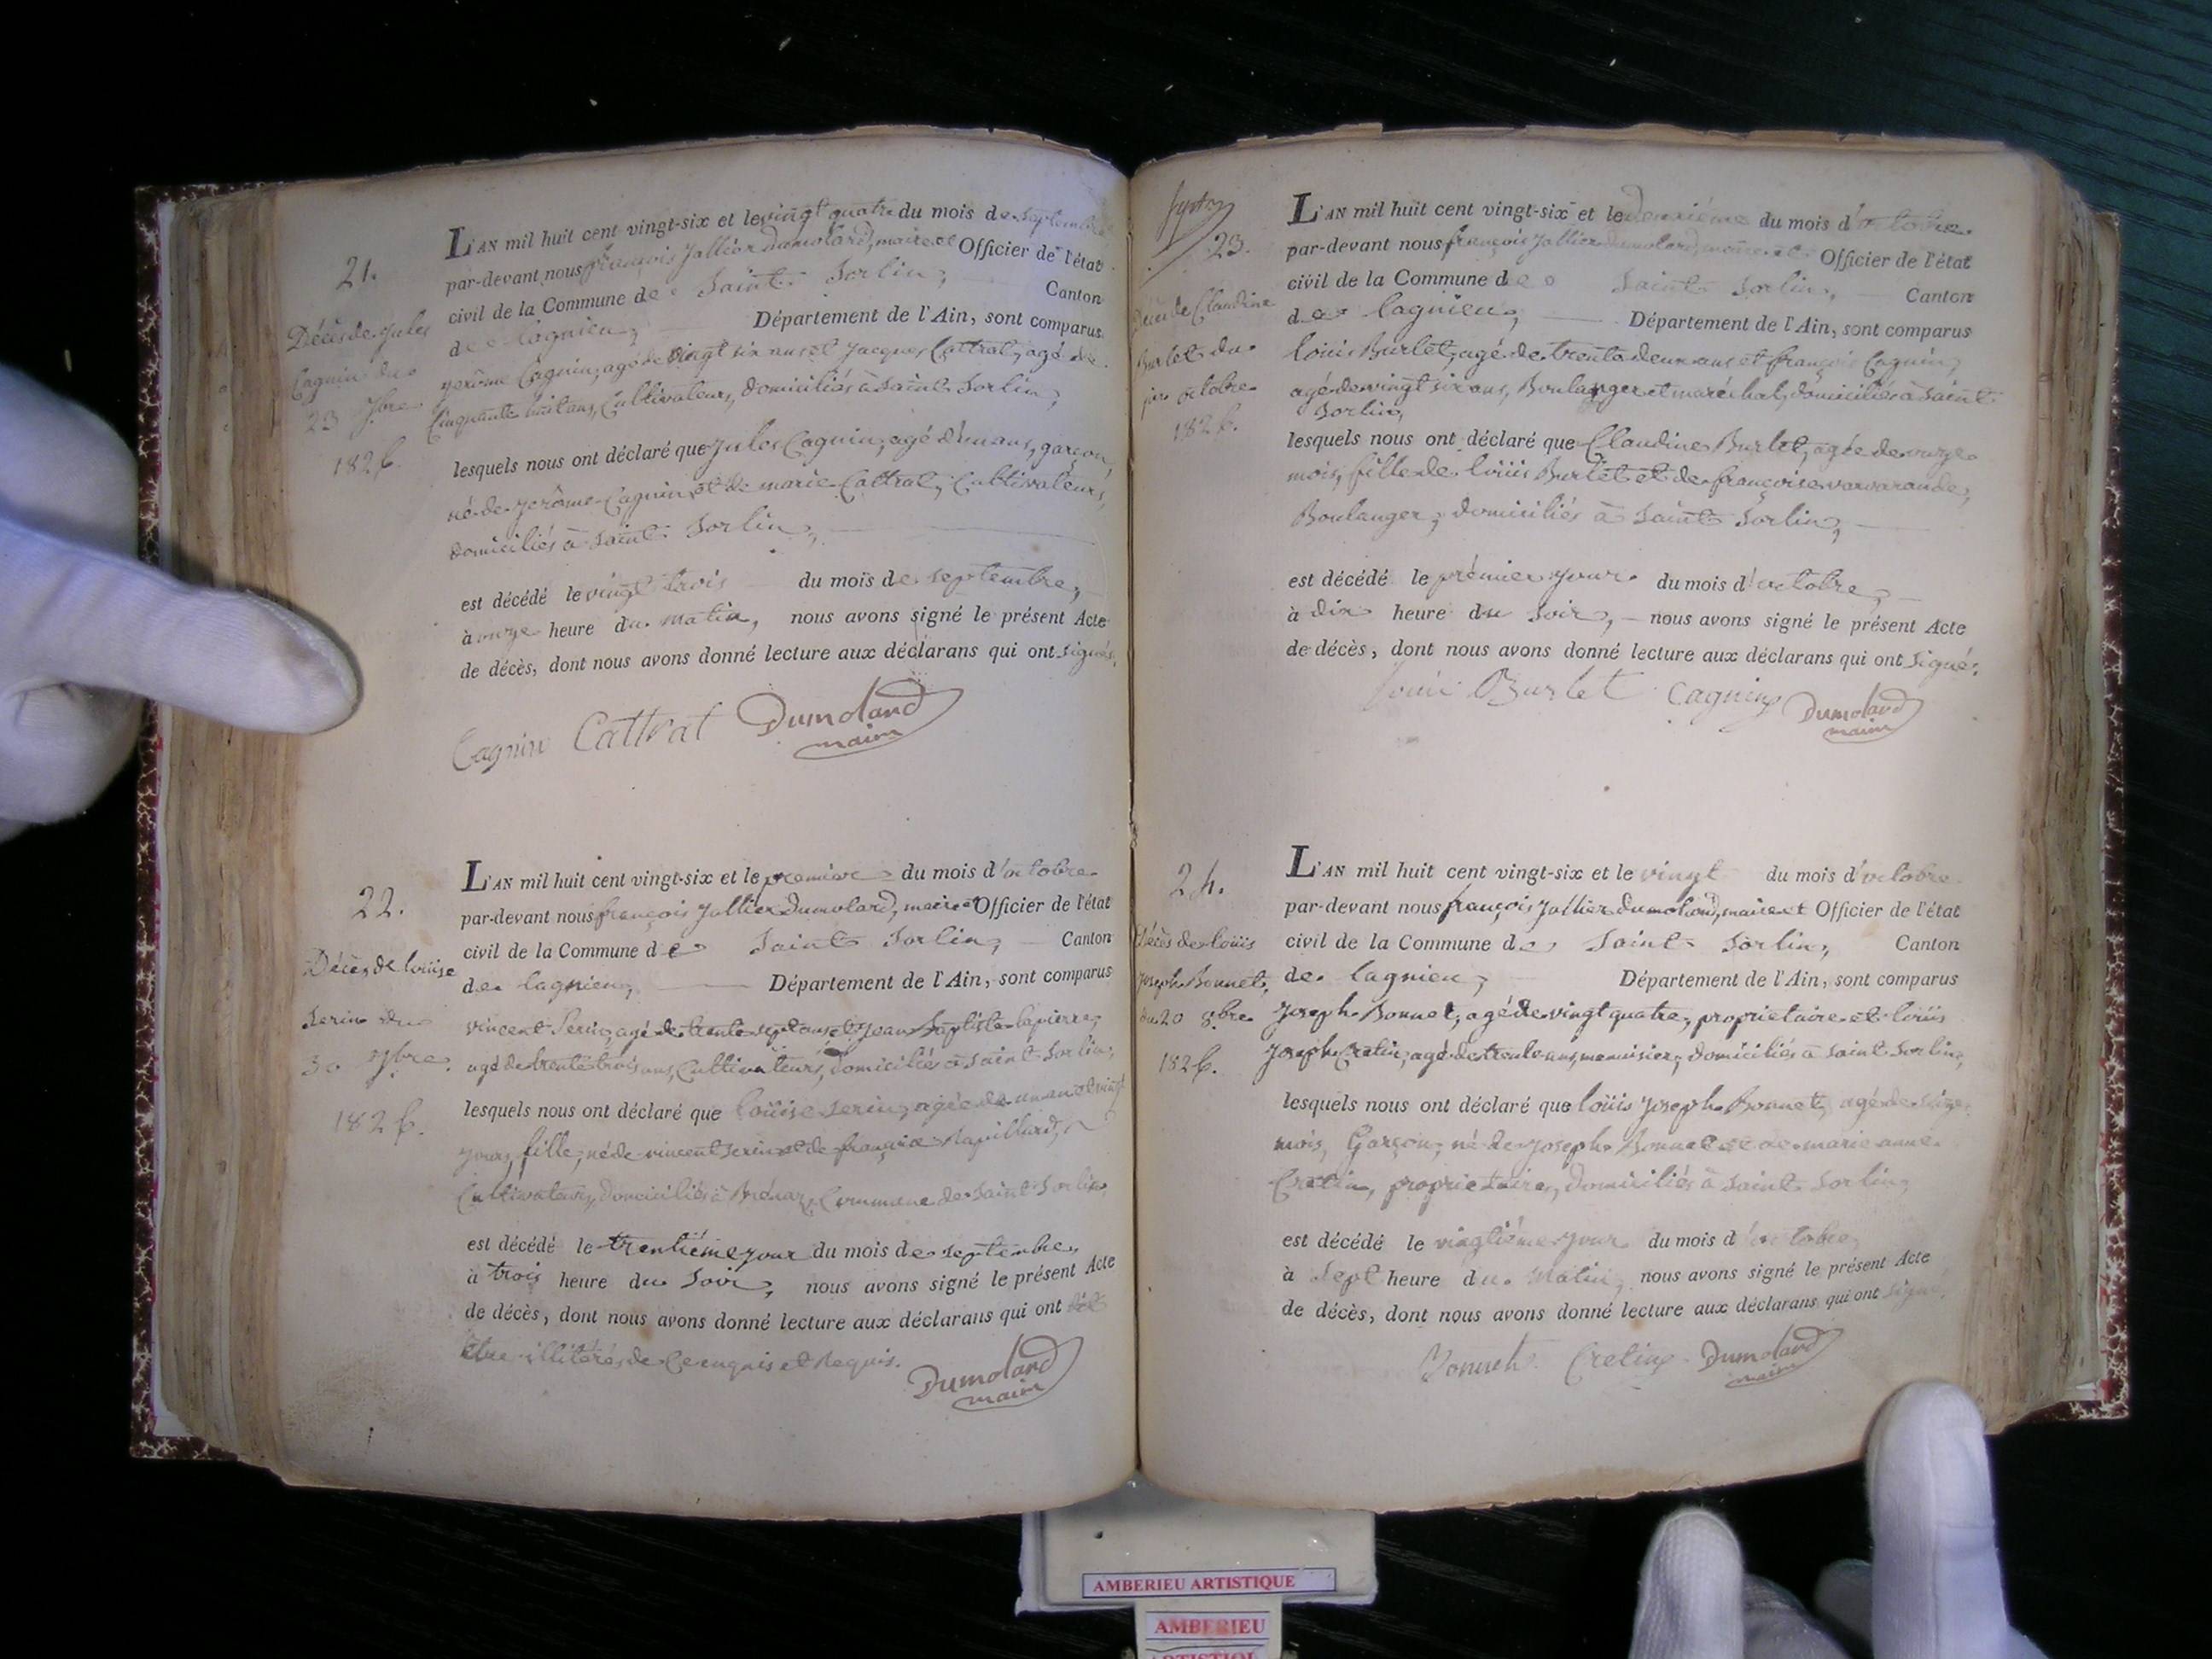 21.
Décès de Jules
Cagnin du
23 7bre
1826.
L'AN mil huit cent vingt-six et le vingt quatre du mois de septembre
par-devant nous françois Jallier Dumolard, maire et Officier de l'état
civil de la Commune de Saint Sorlin, Canton
de Lagnieu, Département de l'Ain, sont comparus
jerôme Cagnin, agé de vingt six ans et Jacques Cattrat, agé de
Cinquante huit ans, Cultivateurs, domiciliés à Saint Sorlin,
lesquels nous ont déclaré que Jules Cagnin, agé d'un ans, garçon,
né de jerôme Cagnin et de marie Cattrat, Cultivateurs,
domiciliés à Saint Sorlin,
est décédé le vingt trois du mois de septembre,
à onze heure du matin, nous avons signé le présent Acte
de décès, dont nous avons donné lecture aux déclarans qui ont signés.
Cagnin Cattrat Dumolard
maire
22.
Décès de louise
Serin du
30 7bre
1826.
L'AN mil huit cent vingt-six et le première du mois d'octobre
par-devant nous françois Jallier Dumolard, maire et Officier de l'état
civil de la Commune de Saint Sorlin, Canton
de lagnieu, Département de l'Ain, sont comparus
vincent Serin, agé de trente sept ans et Jean Baptiste lapierre,
agé de trente trois ans, Cultivateurs, domiciliés à Saint Sorlin,
lesquels nous ont déclaré que loüise Serin, agée de un an et vingt
jours, fille, né de vincent Serin et de françoise
Cultivateurs, domiciliés à Commune de Saint Sorlin
est décédé le trentiéme jour du mois de septembre,
à trois heure du Soir, nous avons signé le présent Acte
de décès, dont nous avons donné lecture aux déclarans qui ont dit
être illitérés de Ce enquis et Requis.
Dumolard
maire
23.
Décès de Claudine
Burlet du
per octobre
1826.
L'AN mil huit cent vingt-six et le deuxiéme du mois d'octobre
par-devant nous françois Jallier Dumolard, maire et Officier de l'état
civil de la Commune de Saint Sorlin, Canton
de lagnieu, Département de l'Ain, sont comparus
louis Burlet, agé de trente deux ans et françois Cagnin,
agé de vingt six ans, Boulanger et maréchal, domiciliés à Saint
Sorlin,
lesquels nous ont déclaré que Claudine Burlet, agée de onze
mois, fille de loüis Burlet et de françoise varvarande,
Boulanger, domiciliés à Saint Sorlin,
est décédé le prémier jour du mois d'octobre,
à dix heure du Soir, nous avons signé le présent Acte
de décès, dont nous avons donné lecture aux déclarans qui ont signé.
Louis Burlet Cagnin Dumolard
maire
24.
Décès de loüis
joseph Bonnet,
du 20 8bre
1826.
L'AN mil huit cent vingt-six et le vingt du mois d'octobre
par-devant nous françois Jallier Dumolard, maire et Officier de l'état
civil de la Commune de Saint Sorlin, Canton
de lagnieu, Département de l'Ain, sont comparus
Joseph Bonnet, agé de vingt quatre, proprietaire et loüis
Joseph Cretin, agé de trente ans, menuisier, domiciliés à Saint Sorlin,
lesquels nous ont déclaré que loüis joseph Bonnet, agé de seize
mois, Garçon, né de joseph Bonnet et de marie anne
Cretin, proprietaires, domiciliés à Saint Sorlin,
est décédé le vingtiéme jour du mois d'octobre,
à sept heure du matin, nous avons signé le présent Acte
de décès, dont nous avons donné lecture aux déclarans qui ont signé
Bonnet Cretin Dumolard
maire
AMBERIEU ARTISTIQUE
AMBERIEU
ARTISTIQUE